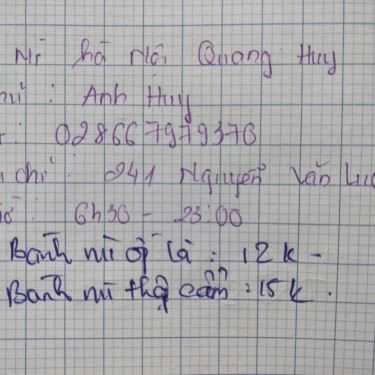 Mì hà Nội Quang Huy
: Anh Huy
: 02866 7979376
chỉ : 241 Nguyễn Văn Lư
: 6h30 - 23:00
Bánh mì ốp la : 12k -
Bánh mì thập cẩm : 15k .